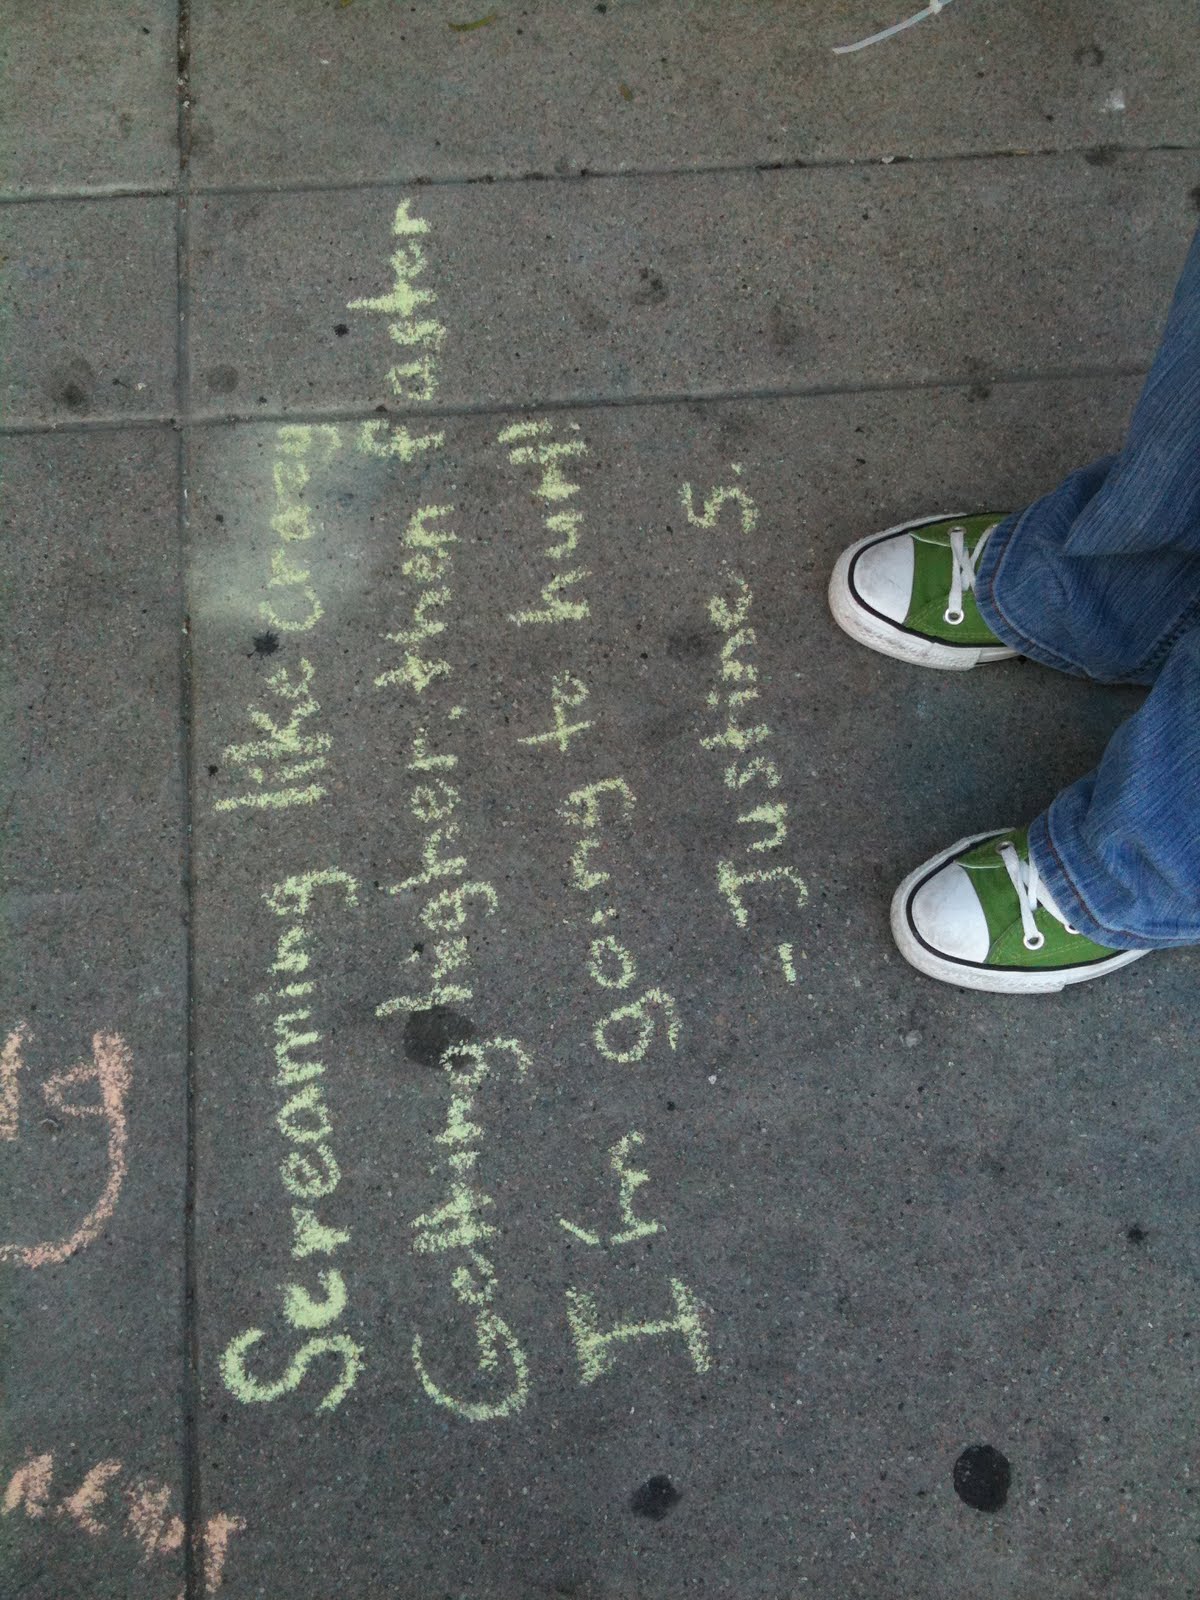 Screaming like crazy
Getting higher. then faster
I'm going to hurl!
- Justine S.